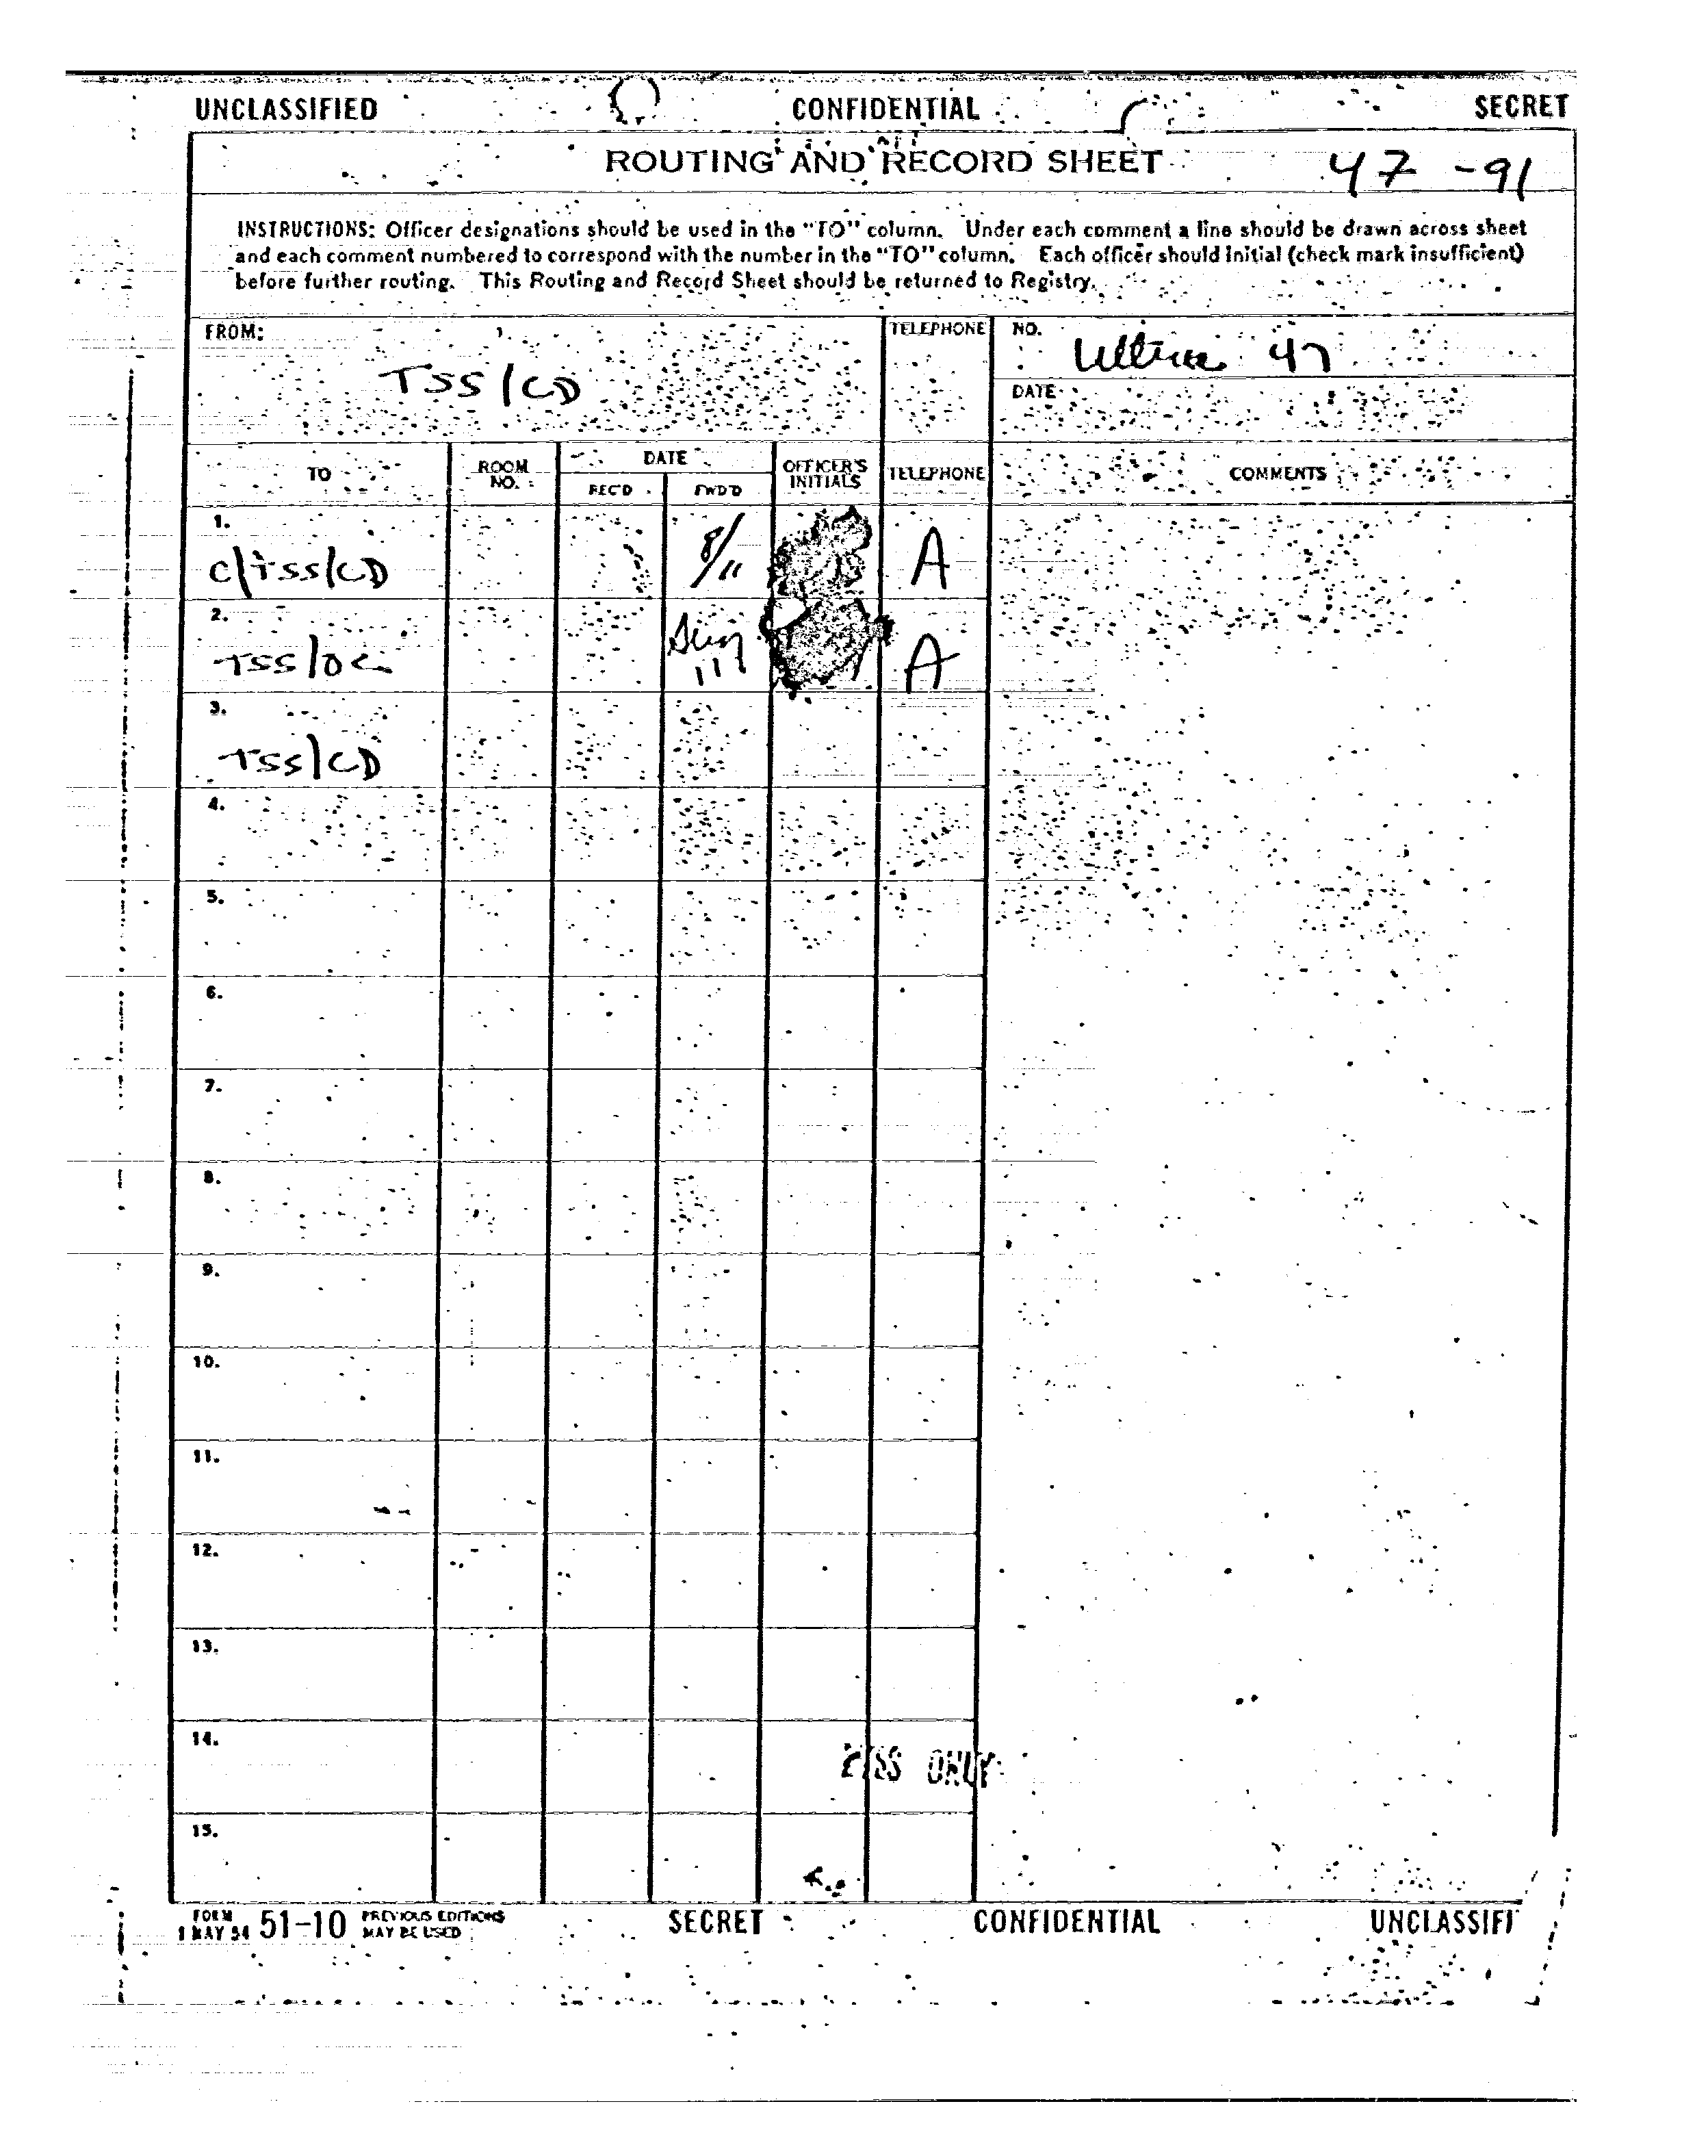 UNCLASSIFIED CONFIDENTIAL SECRET
ROUTING AND RECORD SHEET 47-91
INSTRUCTIONS: Officer designations should be used in the "TO" column. Under each comment a line should be drawn across sheet
and each comment numbered to correspond with the number in the "TO" column. Each officer should initial (check mark insufficient)
before further routing. This Routing and Record Sheet should be returned to Registry.
FROM: TELEPHONE NO.
47
TSS/CD
DATE
TO ROOM NO. DATE OFFICER'S INITIALS TELEPHONE COMMENTS
REC'D FWD'D
1.
C/TSS/CD 8/11 A
2.
TSS/OC A
3.
TSS/CD
4.
5.
6.
7.
8.
9.
10.
11.
12.
13.
14.
ONLY
15.
FORM 1 MAY 54 51-10 PREVIOUS EDITIONS MAY BE USED SECRET CONFIDENTIAL UNCLASSIFI